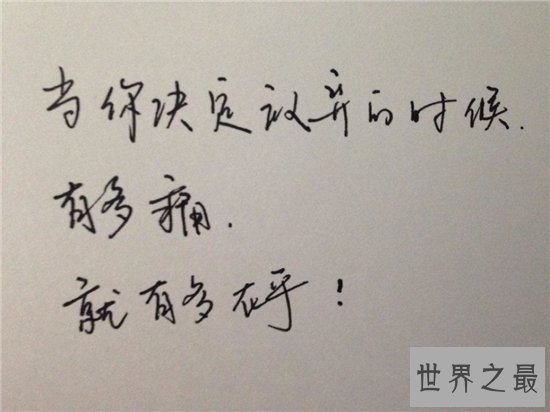 当你决定放弃的时候.
有多痛.
就有多在乎!
世界之最